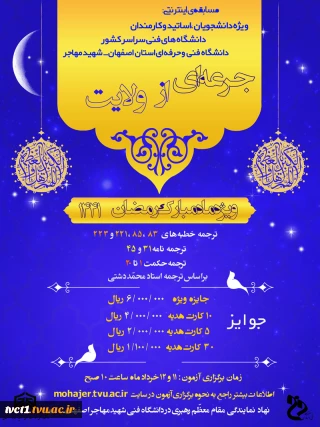 مسابقه‌ی اینترنتی:
ویژه دانشجویان، اساتید و کارمندان
دانشگاه‌های فنی سراسر کشور
دانشگاه فنی و حرفه‌ای استان اصفهان_شهید مهاجر
جرعه‌ای از ولایت
ویژه ماه مبارک رمضان ۱۴۴۱
ترجمه خطبه‌های ۸۳، ۸۵، ۲۲۱ و ۲۲۳
ترجمه نامه ۳۱ و ۴۵
ترجمه حکمت ۱ تا ۲۰
بر اساس ترجمه استاد محمد دشتی
جوایز
جایزه ویژه ۶/۰۰۰/۰۰۰ ریال
۱۰ کارت هدیه ۴/۰۰۰/۰۰۰ ریال
۵ کارت هدیه ۲/۰۰۰/۰۰۰ ریال
۳۰ کارت هدیه ۱/۱۰۰/۰۰۰ ریال
زمان برگزاری آزمون: ۱۱ و ۱۲ خرداد ماه ساعت ۱۰ صبح
اطلاعات بیشتر راجع به نحوه برگزاری آزمون در سایت mohajer.tvu.ac.ir
نهاد نمایندگی مقام معظم رهبری در دانشگاه فنی شهید مهاجر
tvct1.tvu.ac.ir